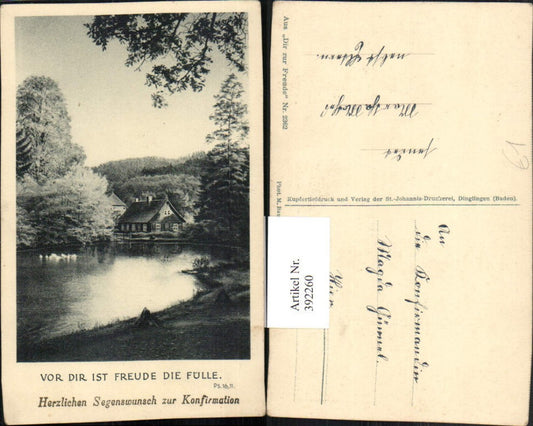 VOR DIR IST FREUDE DIE FÜLLE.
PS.16,11.
Herzlichen Segenswunsch zur Konfirmation
Aus „Dir zur Freude“ Nr. 2362
Phot. M.
Kupfertiefdruck und Verlag der St.-Johannis-Druckerei, Dinglingen (Baden).
61
nebst Eltern.
Artikel Nr.
392260
An
die Konfirmandin
Magda
Hier